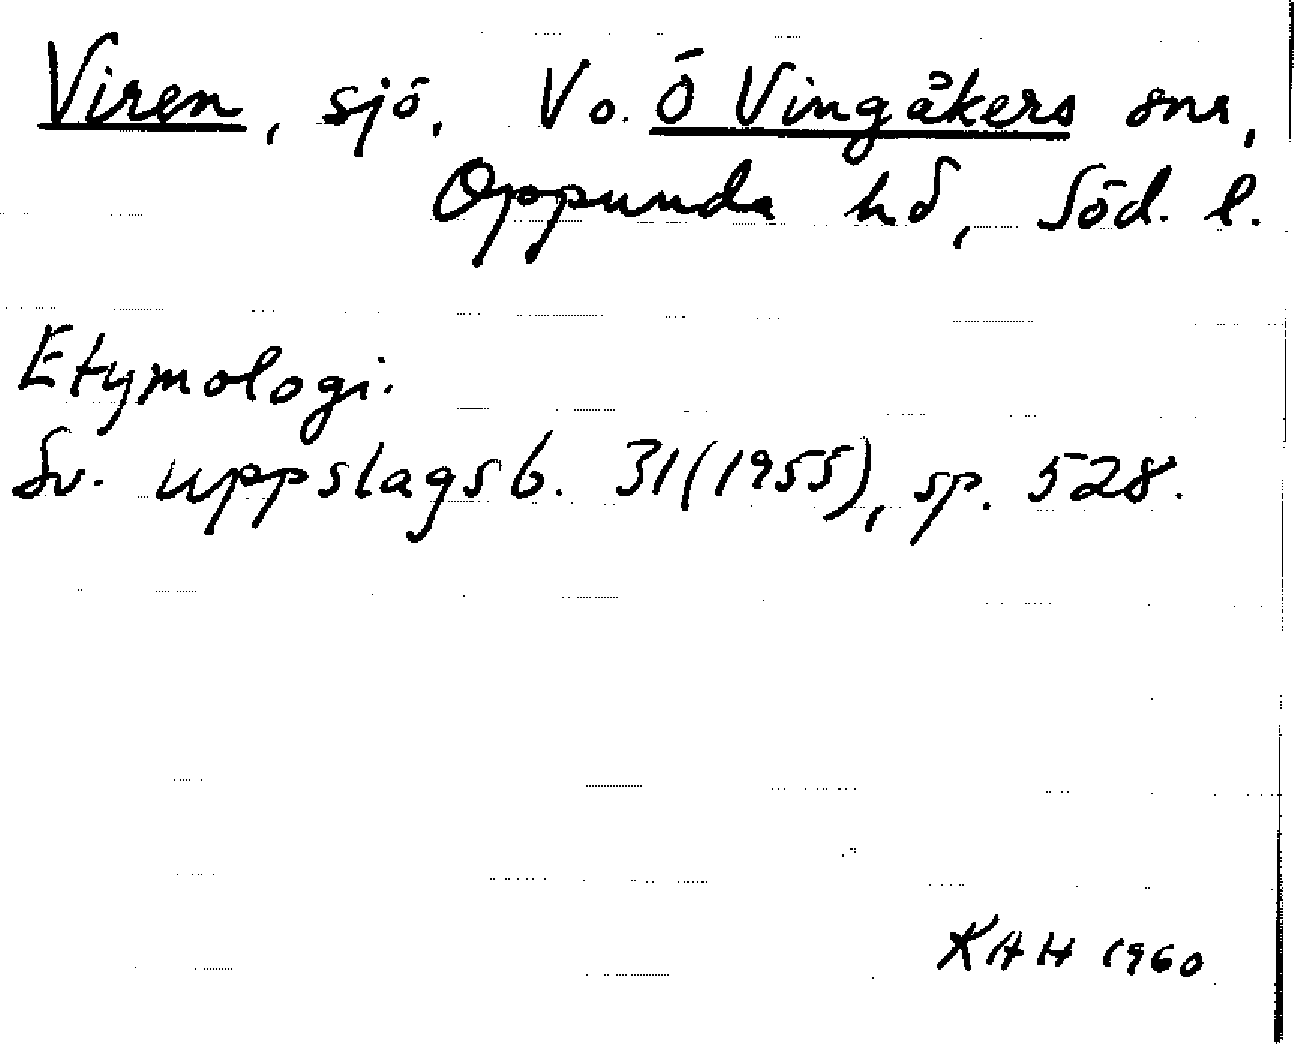 Viren, sjö, Vo. Ö Vingåkers snr,
Oppunda hd, Söd. l.
Etymologi.
Sv. uppslagsb. 31(1955), sp. 528.
KAH 1960